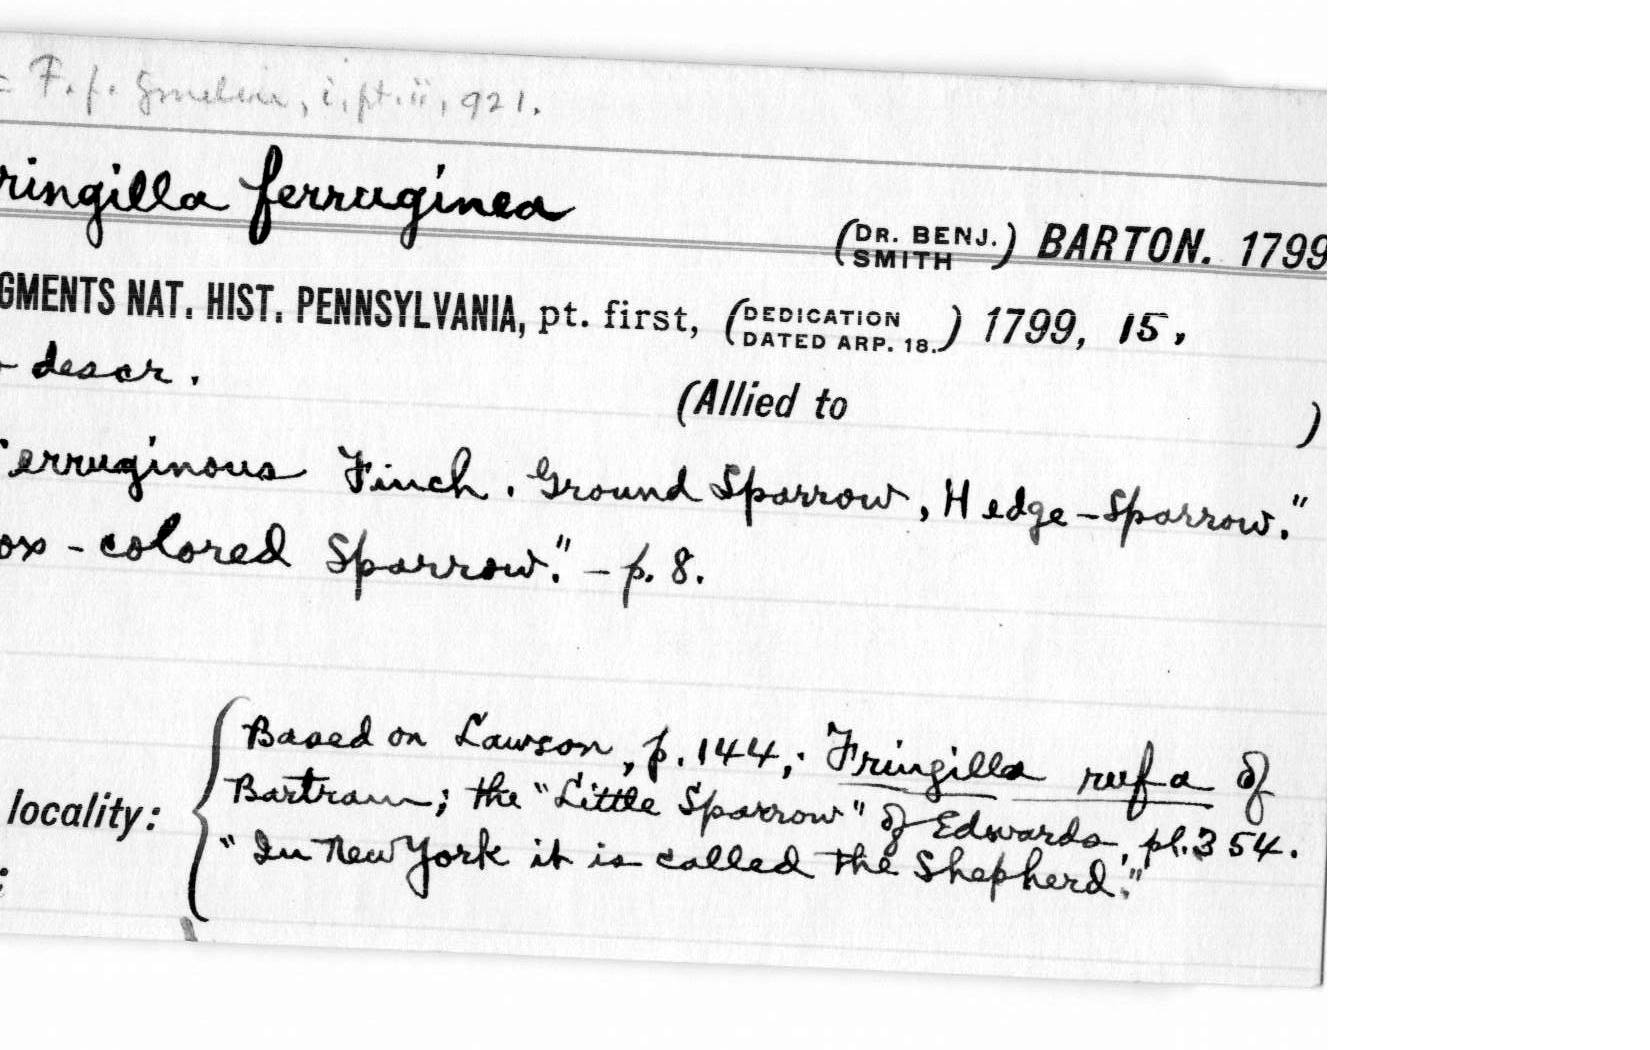 = F. f. Gmelin, i, pt. ii, 921.
ringilla ferruginea
(DR. BENJ. SMITH) BARTON. 1799
GMENTS NAT. HIST. PENNSYLVANIA, pt. first, (DEDICATION DATED ARP. 18.) 1799, 15,
descr.
(Allied to )
erruginous Finch. Ground Sparrow, Hedge-Sparrow."
ox-colored Sparrow." - p. 8.
Based on Lawson, p. 144,; Fringilla rufa of
locality: Bartram; the "Little Sparrow" of Edwards, pl. 354.
"In New York it is called the Shepherd."